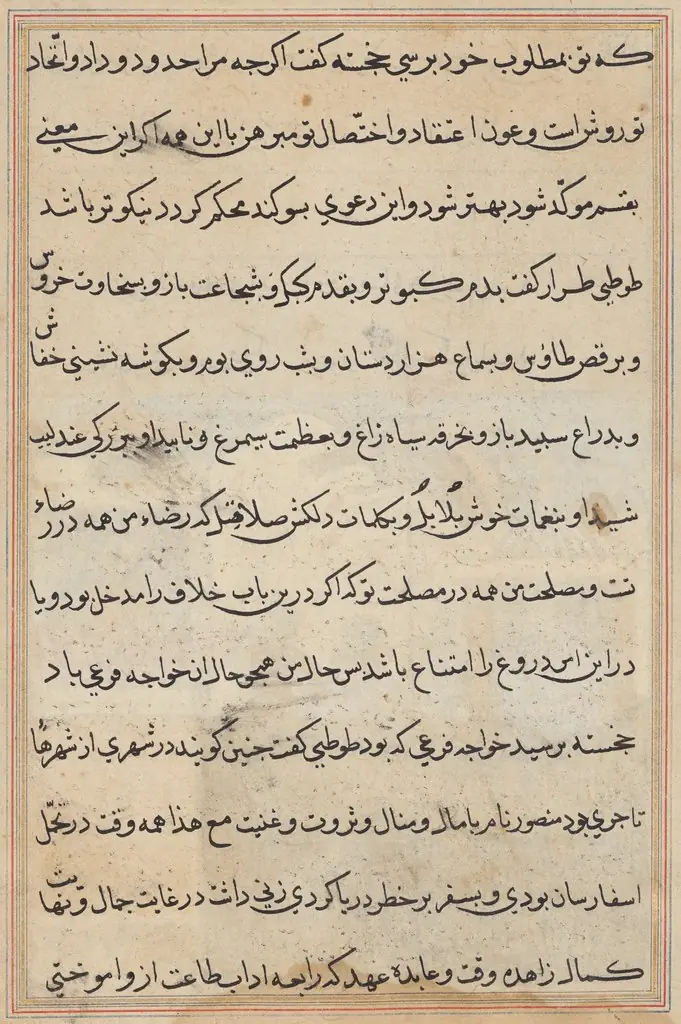 که تو بمطلوب خود برسي خجسته کفت اکرجه مرا حدود وداد واتّحاد
تو روش است وعون اعتقاد واختّصال تو مبرهن با این همه اکر این معنے
بقسم موکّد شود بهتر شود واین دعوي بسوکند محکم کردد نیکوتر باشد
طوطي طرار کفت بدم کبوتر وبقدم کبک وشجاعت باز وبسخاوت خروس
وبرقص طاؤس وبسماع هزاردستان وبشب روي بوم وبکوشه نشیني خفاش
وبدراع سبید باز وبخرقه سیاه زاغ وبعظمت سیمرغ وناپیداو بزرکي عندلیب
شیدا وبنغمات خوش بُلابلُ وبکلمات دلکش صلاصل که رضاء من همه در رضاء
تست ومصلحت من همه در مصلحت تو که اکر درین باب خلاف را مدخل بود ویا
در این امر دروغ را امتناع باشد بس حال من همجو حال ان خواجه فرعي باد
خجسته برسید خواجه فرعي که بود طوطي کفت جنین کویند در شهري از شهرهُا
تاجري بود منصور نام با مال ومنال وثروت وغنیت مع هذا همه وقت در تحمّل
اسفار سان بودي وبسفر بر خطر دریا کردي زني داشت در غایت جمال ونهایت
کمال زاهده وقت وعابده عهد که رابعه اداب طاعت ازو اموختي